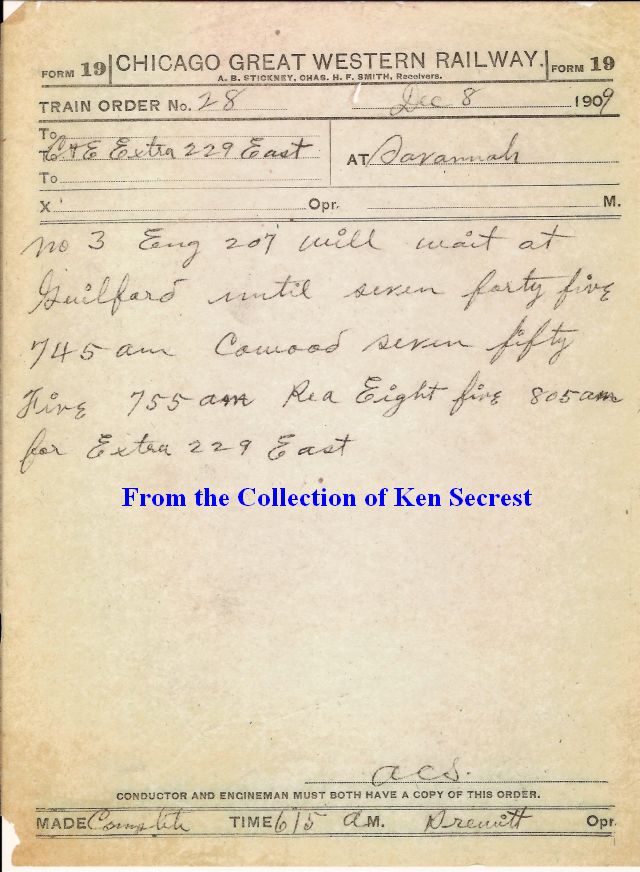 FORM 19 CHICAGO GREAT WESTERN RAILWAY. FORM 19
A. B. STICKNEY, CHAS. H. F. SMITH, Receivers.
TRAIN ORDER No. 28 Dec 8 1909
To
To C&E Extra 229 East AT Savannah
To
X Opr. M.
No 3 Eng 207 will wait at
Guilford until seven forty five
745 am Cawood seven fifty
Five 755 am Rea Eight five 805 am
for Extra 229 East
From the Collection of Ken Secrest
ACS.
CONDUCTOR AND ENGINEMAN MUST BOTH HAVE A COPY OF THIS ORDER.
MADE Complete TIME 615 a M. Opr.